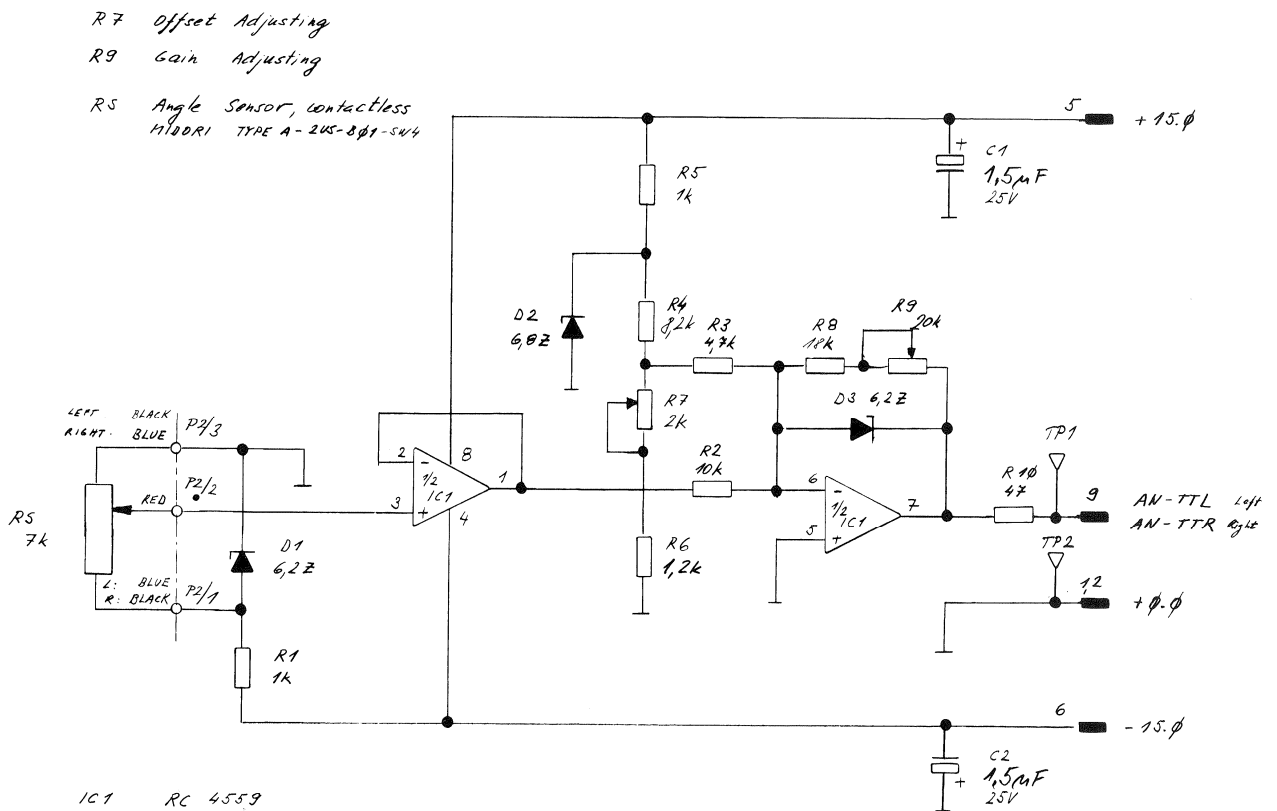 R7 Offset Adjusting
R9 Gain Adjusting
RS Angle Sensor, contactless
MIDORI TYPE A-2US-BØ1-SW4
5
+15.Ø
+
C1
1,5µF
25V
R5
1k
D2
6,8Z
R4
8,2k
R3
4,7k
R8
18k
R9
20k
D3 6,2Z
R7
2k
LEFT BLACK
RIGHT. BLUE
P2/3
RED
P2/2
RS
7k
D1
6,2Z
L: BLUE
R: BLACK
P2/1
2
-
8
1/2
IC1
1
3
+
4
R2
10k
6
-
1/2
IC1
7
5
+
R1Ø
47
TP1
9
AN-TTL Left
AN-TTR Right
TP2
1,2
+Ø.Ø
R6
1,2k
R1
1k
6
-15.Ø
C2
1,5µF
+
25V
IC1 RC 4559